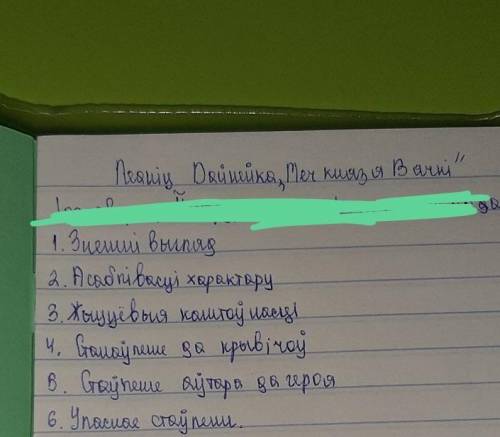 Леанід Дайнейка „Меч князя Вячкі"
да
1. Знешні выгляд
2. Асаблівасці характару
3. Жыццёвыя каштоўнасці
4. Стаўленне да крывічоў
5. Стаўленне аўтара да героя
6. Уласнае стаўленне.